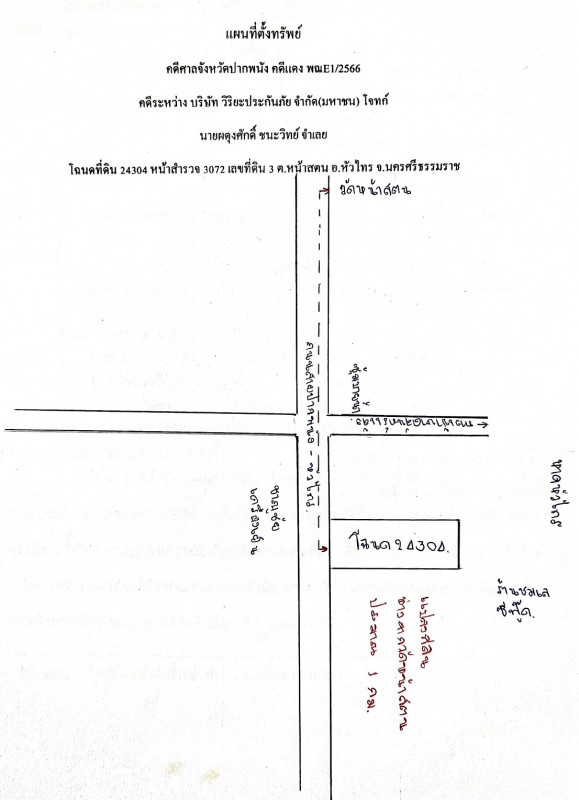 แผนที่ตั้งทรัพย์
คดีศาลจังหวัดปากพนัง คดีแดง พฒE1/2566
คดีระหว่าง บริษัท วิริยะประกันภัย จำกัด(มหาชน) โจทก์
นายผดุงศักดิ์ ชนะวิทย์ จำเลย
โฉนดที่ดิน 24304 หน้าสำรวจ 3072 เลขที่ดิน 3 ต.หน้าสตน อ.หัวไทร จ.นครศรีธรรมราช
วัดหน้าสตน
ถนนสายปากพนัง - หัวไทร.
หาดหัวไทร
โฉนด 24304.
ร้านชมเล
ซีฟู้ด.
แปลงที่ดิน
ห่างจากวัดหน้าสตน
ประมาณ 1 กม.